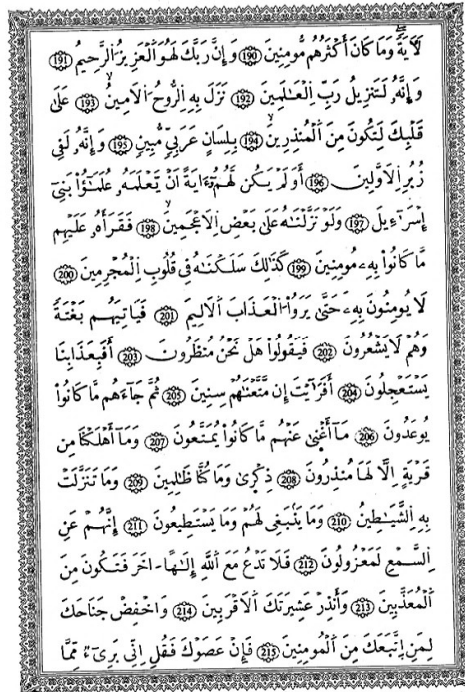 لَأَيَةً وَمَا كَانَ أَكْثَرُهُم مُّومِنِينَ 190 وَإِنَّ رَبَّكَ لَهُوَ اَ۬لْعَزِيزُ اُ۬لرَّحِيمُ 191
وَإِنَّهُۥ لَتَنزِيلُ رَبِّ اِ۬لْعَٰلَمِينَ 192 نَزَلَ بِهِ اِ۬لرُّوحُ اُ۬لَامِينُ 193 عَلَىٰ
قَلْبِكَ لِتَكُونَ مِنَ اَ۬لْمُنذِرِينَ 194 بِلِسَانٍ عَرَبِيّٖ مُّبِينٖ 195 وَإِنَّهُۥ لَفِے
زُبُرِ اِ۬لَاوَّلِينَ 196 أَوَلَمْ يَكُن لَّهُمُۥٓ ءَايَةً اَنْ يَّعْلَمَهُۥ عُلَمَٰٓؤُاْ بَنِےٓ
إِسْرَآءِيلَ 197 وَلَوْ نَزَّلْنَٰهُ عَلَىٰ بَعْضِ اِ۬لَاعْجَمِينَ 198 فَقَرَأَهُۥ عَلَيْهِم
مَّا كَانُواْ بِهِۦ مُومِنِينَ 199 كَذَٰلِكَ سَلَكْنَٰهُ فِے قُلُوبِ اِ۬لْمُجْرِمِينَ 200
لَا يُومِنُونَ بِهِۦ حَتَّىٰ يَرَوُاْ اُ۬لْعَذَابَ اَ۬لَالِيمَ 201 فَيَاتِيَهُم بَغْتَةً
وَهُمْ لَا يَشْعُرُونَ 202 فَيَقُولُواْ هَلْ نَحْنُ مُنظَرُونَ 203 أَفَبِعَذَابِنَا
يَسْتَعْجِلُونَ 204 أَفَرَٰٓيْتَ إِن مَّتَّعْنَٰهُمْ سِنِينَ 205 ثُمَّ جَآءَهُم مَّا كَانُواْ
يُوعَدُونَ 206 مَآ أَغْنَىٰ عَنْهُم مَّا كَانُواْ يُمَتَّعُونَ 207 وَمَآ أَهْلَكْنَا مِن
قَرْيَةٍ اِلَّا لَهَا مُنذِرُونَ 208 ذِكْرَىٰ وَمَا كُنَّا ظَٰلِمِينَ 209 وَمَا تَنَزَّلَتْ
بِهِ اِ۬لشَّيَٰطِينُ 210 وَمَا يَنۢبَغِے لَهُمْ وَمَا يَسْتَطِيعُونَ 211 إِنَّهُمْ عَنِ
اِ۬لسَّمْعِ لَمَعْزُولُونَ 212 فَلَا تَدْعُ مَعَ اَ۬للَّهِ إِلَٰهاً ـ اخَرَ فَتَكُونَ مِنَ
اَ۬لْمُعَذَّبِينَ 213 وَأَنذِرْ عَشِيرَتَكَ اَ۬لَاقْرَبِينَ 214 وَاخْفِضْ جَنَاحَكَ
لِمَنِ اِ۪تَّبَعَكَ مِنَ اَ۬لْمُومِنِينَ 215 فَإِنْ عَصَوْكَ فَقُلِ اِنِّے بَرِےٓءٞ مِّمَّا